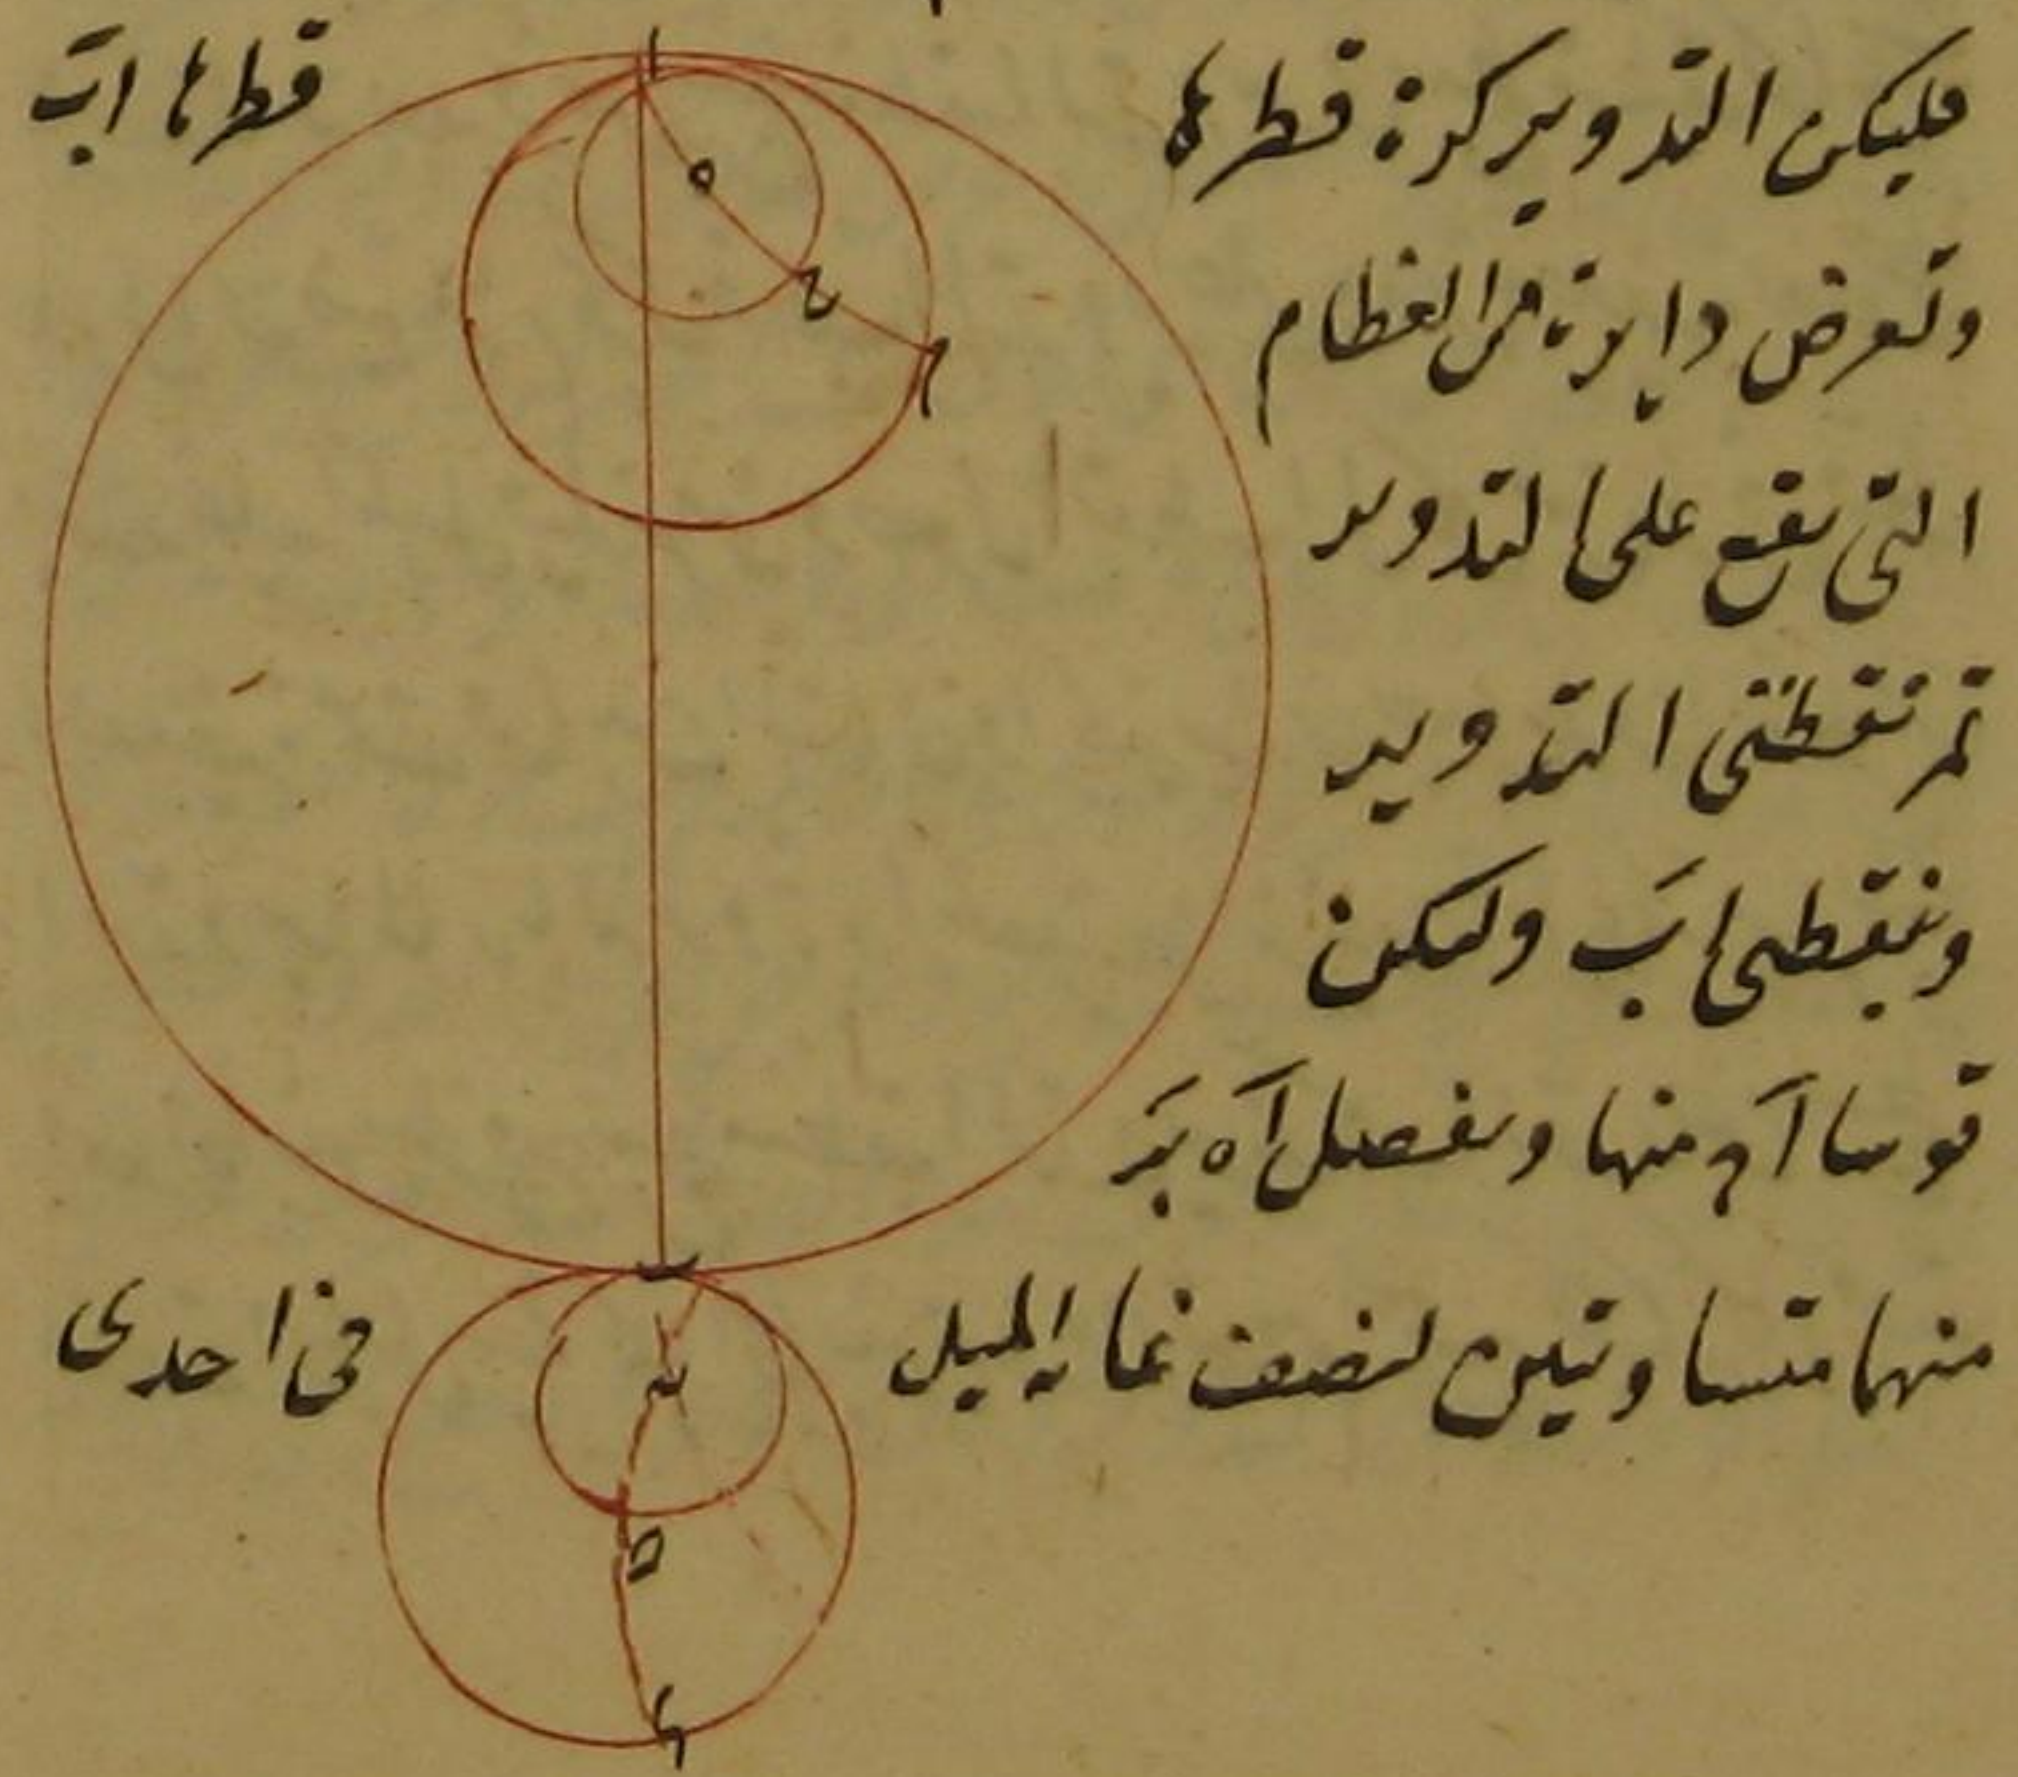 فليكن التدوير كرة قطرها قطرها اب
وتعرض دايرة من العظام
التى يقع على التدوير
تمر بنقطتى التدوير
وبنقطى اب ولتكن
قوسا ا منها ونفصل اه بر
منهما متساويتين لنصف غاية الميل فى احدى
ا
ه
ح
ب